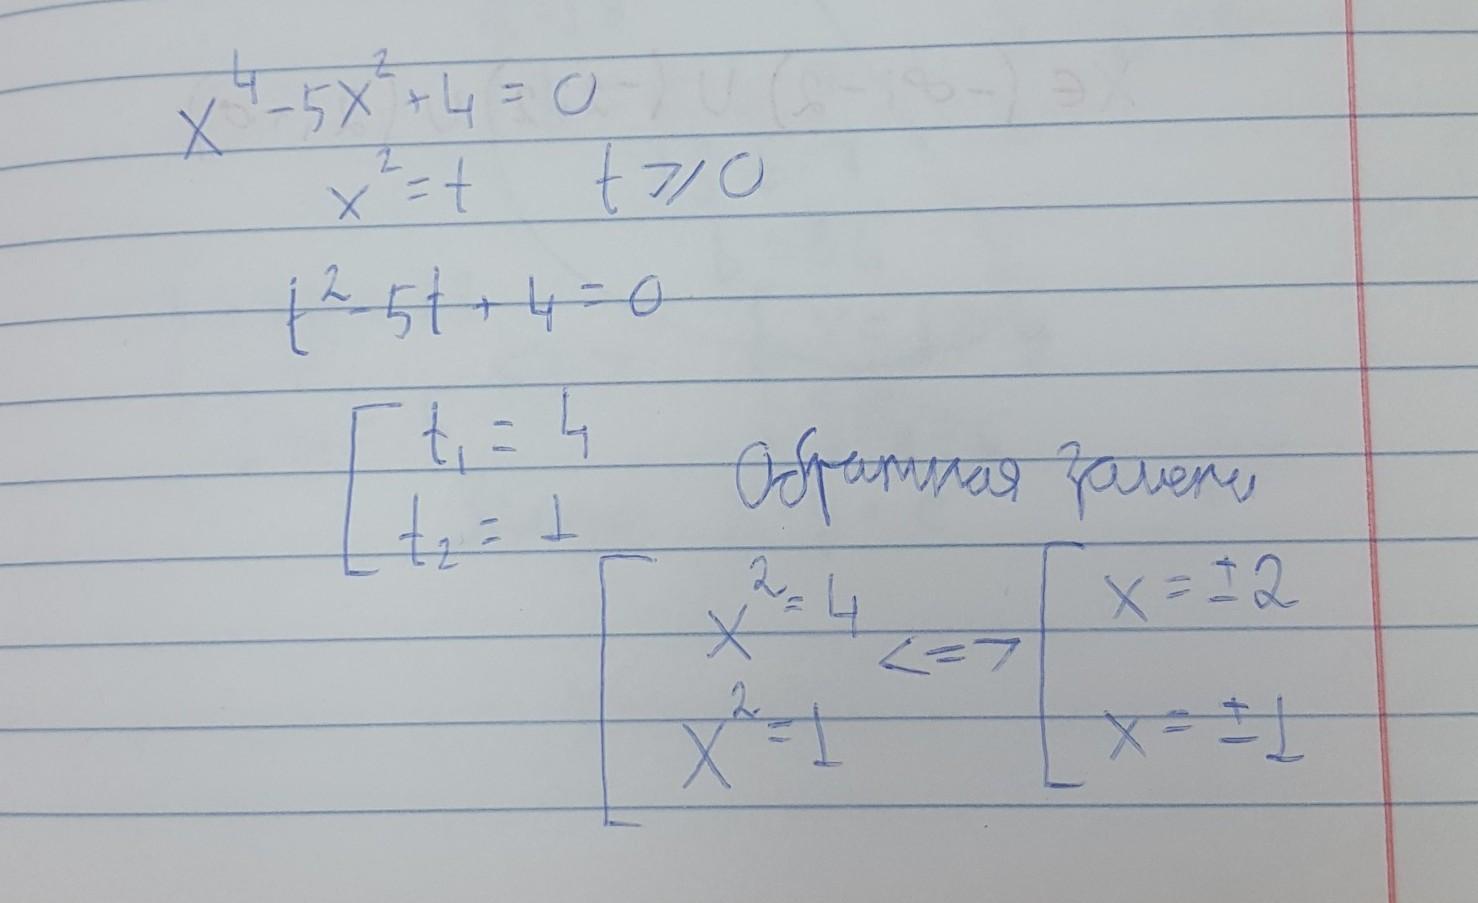 x⁴-5x²+4=0
x²=t t⩾0
t²-5t+4=0
t₁=4
t₂=1
Обратная замена
x²=4 <=> x=±2
x²=1 x=±1